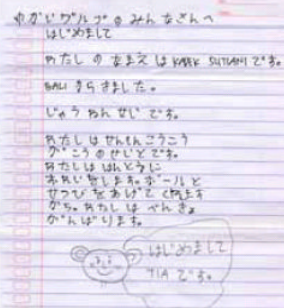 ゆかいグループのみんなさんへ
はじめまして
わたしのなまえはKADEK SUTIANIです。
BALIからきました。
じゅうねんせいです。
わたしはせんもんこうこう
がこうのせいとです。
わたしはほんとうに
ボールと
せつびをあげてくれます
から。わたしはべんきょ
がんばります。
はじめまして
TIAです。